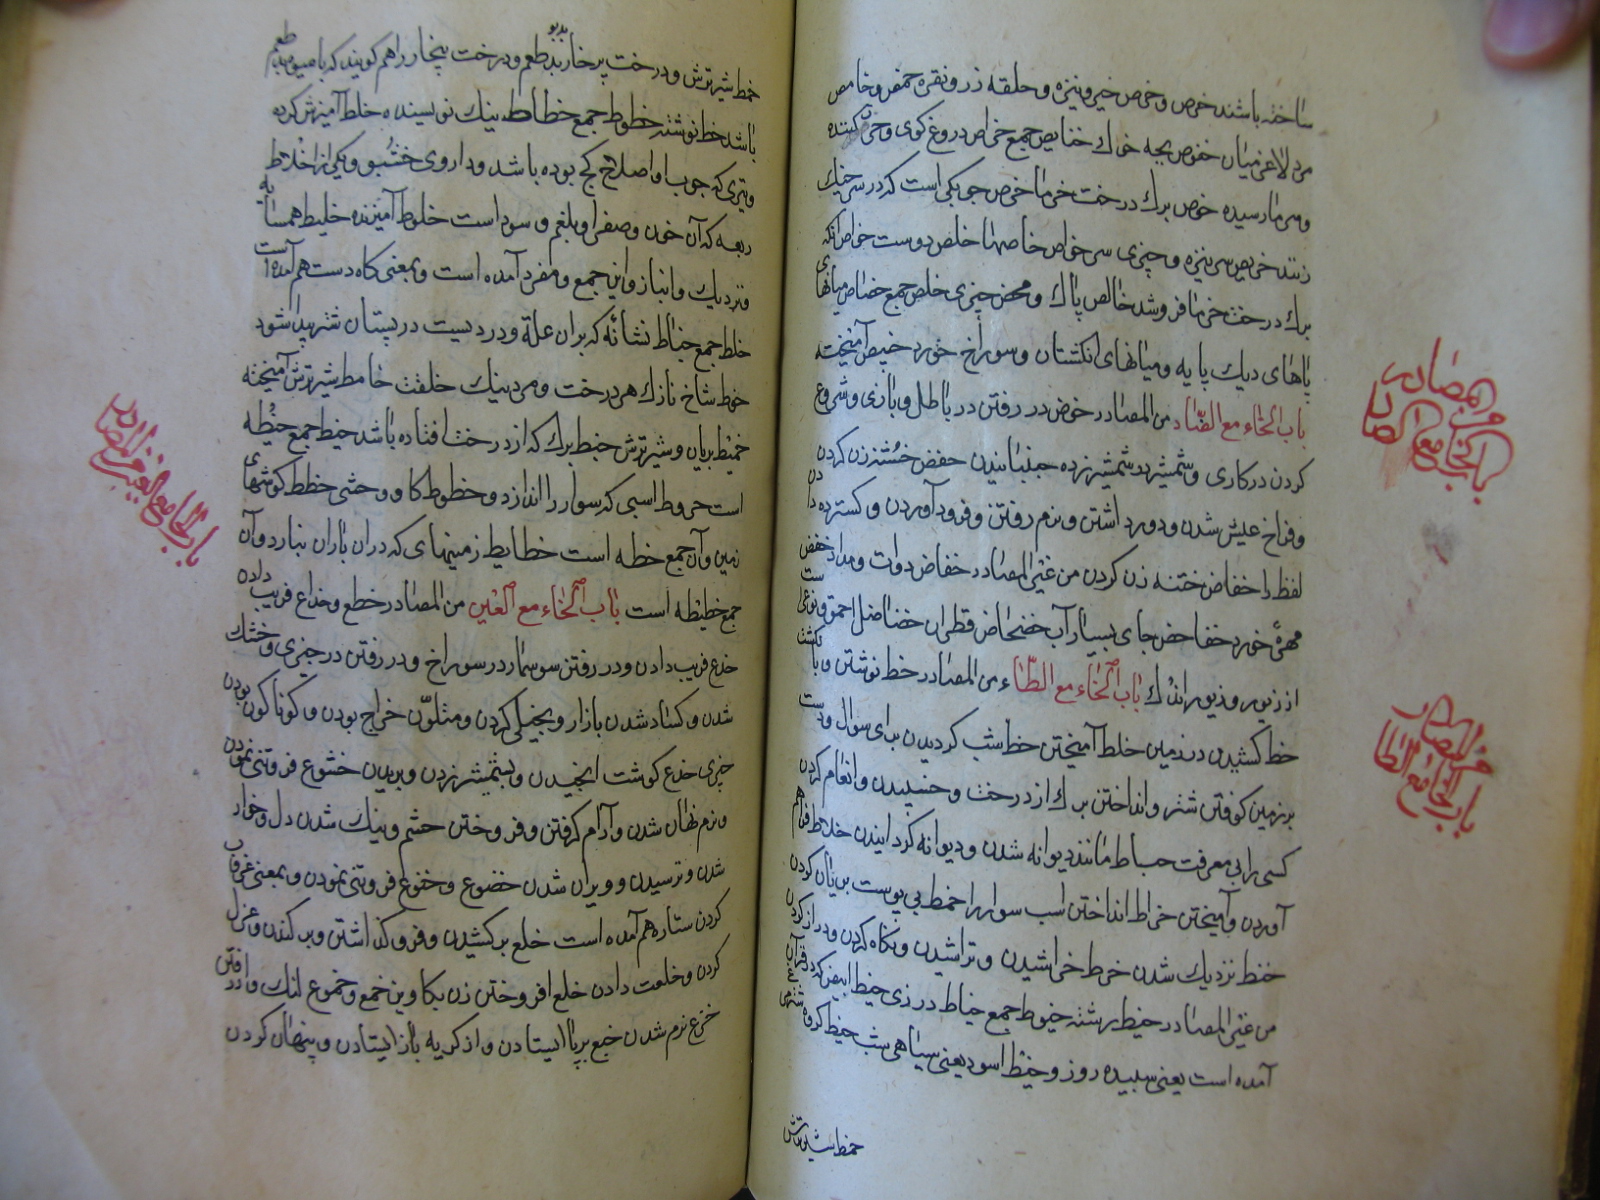 ساخته باشند خرص و خرص خیر و نیزه و حلقه زر و نقره خمص و خامص
مرد لاغر میان خنوص بچه خوك خنانیص جمع خراص دروغ گوی و کننده
و رسیده خوص برك درخت خرما خوص جوبکی است که در سر خیك
زنند خریص سر نیزه و چیزی سر خواص خاصها خلص دوست خواص آنکه
برك درخت خرما فروشد خالص پاك و محض چیزی خلص جمع خصاص میانهای
پاهای دیك پایه و میانهای انکشتان و سوراخ خورد خبیص آمیخته
باب الخاء مع الضاد من المصادر خوض در رفتن در باطل و بازی و شروع
کردن در کاری و شمشیر در شمشیر زده جنبانیدن خفض ختنه زن کردن
و فراخ عیش شدن و دور داشتن و نرم رفتن و فرود آوردن و کسره دادن
لفظ را خفاض ختنه زن کردن من غیر المصادر خضاض دوات و مداد خضض
مهره خورد خضاخض جای بسیار آب خضخاض قطران خضاضل احمق و نوعی است
از زیور و زیور اندك باب الخاء مع الطاء من المصادر خط نوشتن و با نکشت
خط کشیدن در زمین خلط آمیختن خبط شب کردیدن برای سوال و دست
بر زمین کوفتن شتر و انداختن برك از درخت و خسپیدن و انعام کردن
کسی را بی معرفت خباط مانند دیوانه شدن و دیوانه کردانیدن خلاط فراهم
آوردن و آمیختن خراط انداختن اسب سوار را خمط بی پوست بریان کردن
خنط نزدیك شدن خرط خراشیدن و تراشیدن و نکاه کردن و دراز کردن
من غیر المصادر خیط رشته خیوط جمع خیاط درزی خیط ابیض که در قرآن
آمده است یعنی سپیده روز و خیط اسود یعنی سیاهی شب خیط کروه شتر مرغ
خمط شیر ترش
باب الخاء مع الضاد من المصادر
باب الخاء مع الطاء من المصادر
خمط شیر ترش و درخت پر خار بد طعم و درخت بیخار را هم کویند که با میوه بد طعم
باشد خط نوشته خطوط جمع خطاط نیك نویسنده خلط آمیزش کرده
و تیری که چوب او اصلاح کج بوده باشد و داروی خشبو و یکی از اخلاط
ربعه که آن خون و صفرا و بلغم و سودا است خلوط آمیزنده خلیط همسایه
و نزدیك و انباز و این جمع و مفرد آمده است و بمعنی کاه دست هم آمده است
خلط جمع خباط نشانه که بر ران علة و دردیست در پستان شتر پیدا شود
خوط شاخ نازك هر درخت و مرد نیك خلقت خامط شیر ترش آمیخته
خمیط بریان و شیر ترش خبط برك که از درخت افتاده باشد خبط جمع خبطه
است خروط اسبی که سوار را اندازد و خطوط کاو وحشی خطط کوشهای
زمین و آن جمع خطه است خطایط زمینهای که در آن باران نبارد و آن
جمع خطیطه است باب الخاء مع العین من المصادر خطع و خداع فریب داده
خدع فریب دادن و در رفتن سوسمار در سوراخ و در رفتن در چیزی و خشك
شدن و کساد شدن بازار و بخیلی کردن و متلون خراج بودن و کوناکون بودن
چیزی خذع کوشت انجیدن و بشمشیر زدن و بریدن خشوع فروتنی نمودن
و نرم نهان شدن و آرام کرفتن و فرو ختن چشم و نیك شدن دل و خوار
شدن و ترسیدن و ویران شدن خضوع و خنوع فروتنی نمودن و بمعنی غروب
کردن ستاره هم آمده است خلع بر کشیدن و فرو کذاشتن و بر کندن و عزل
کردن و خلعت دادن خلع افروختن زن بکاوین خمع و خموع لنك و از رفتن
خزع نرم شدن خبع بر پا ایستادن و از کریه باز ایستادن و پنهان کردن
باب الخا مع العین من المصادر